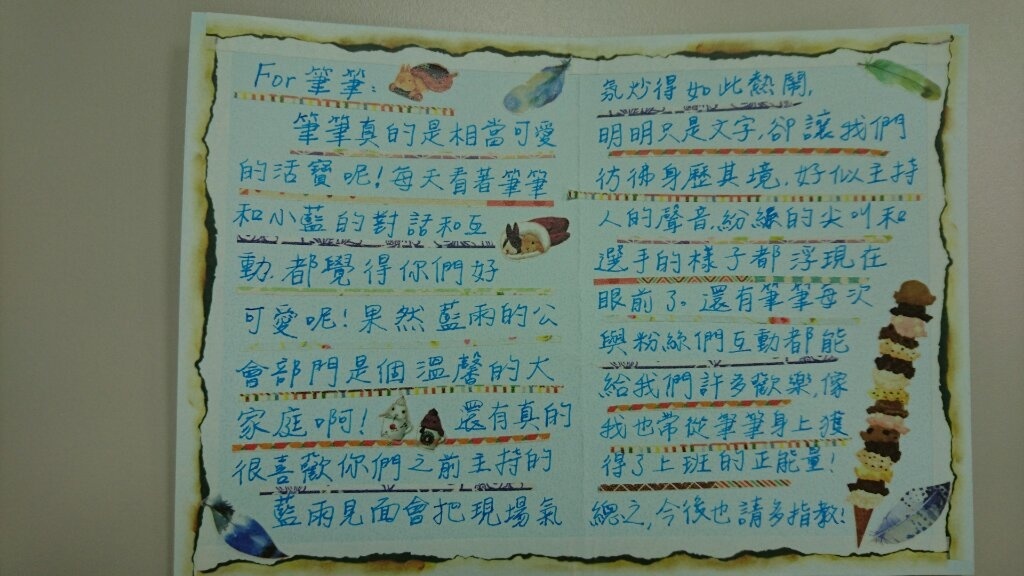 For 筆筆:
筆筆真的是相當可愛
的活寶呢!每天看著筆筆
和小藍的對話和互
動,都覺得你們好
可愛呢!果然藍雨的公
會部門是個溫馨的大
家庭啊! 還有真的
很喜歡你們之前主持的
藍雨見面會把現場氣
氛炒得如此熱鬧,
明明只是文字,卻讓我們
彷彿身歷其境,好似主持
人的聲音,粉絲的尖叫和
選手的樣子都浮現在
眼前了。還有筆筆每次
與粉絲們互動都能
給我們許多歡樂,像
我也常從筆筆身上獲
得了上班的正能量!
總之,今後也請多指教!